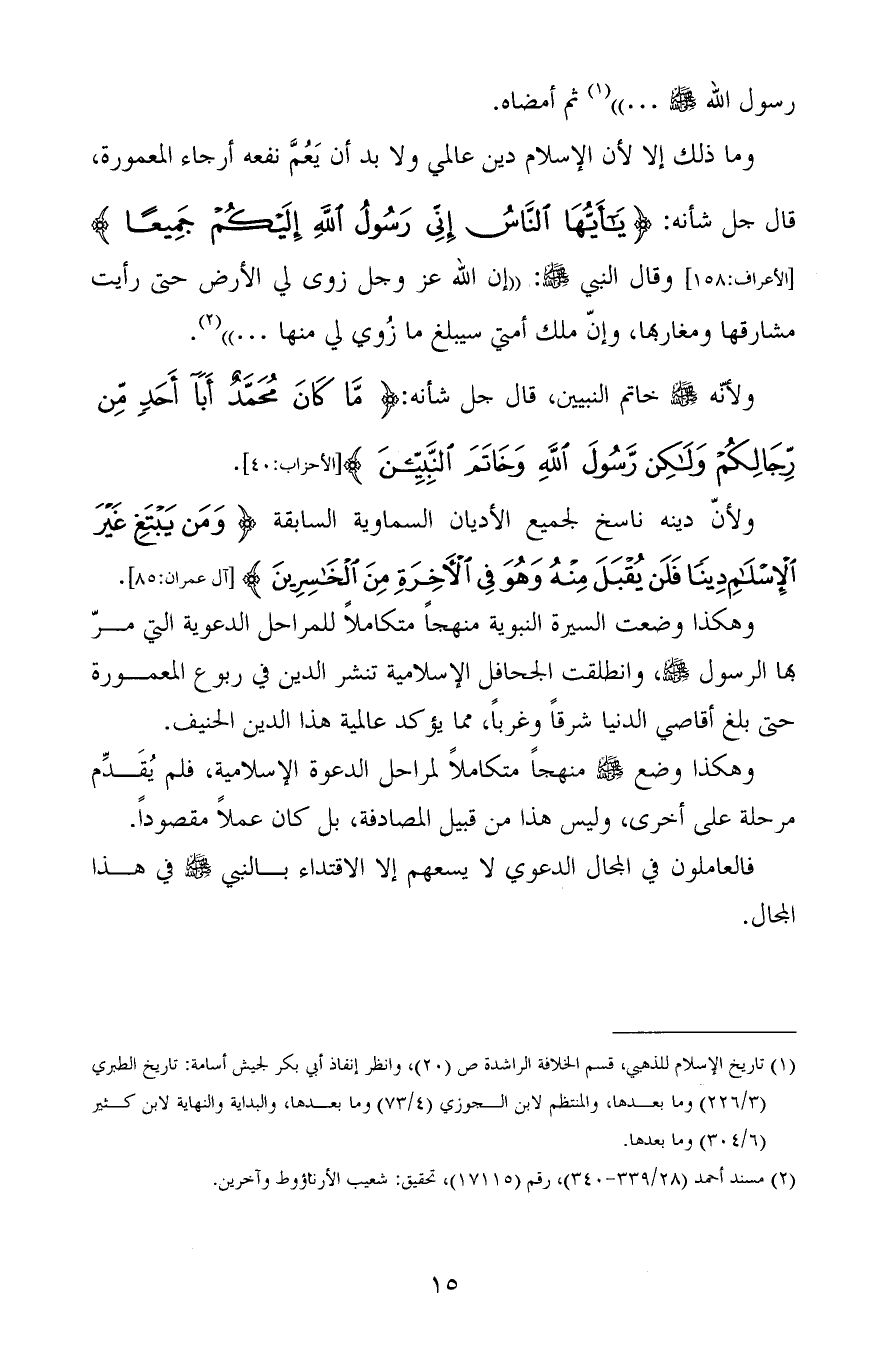 رسول الله ﷺ ...))(١) ثم أمضاه.
وما ذلك إلا لأن الإسلام دين عالمي ولا بد أن يَعُمَّ نفعه أرجاء المعمورة،
قال جل شأنه: ﴿ يَـٰٓأَيُّهَا ٱلنَّاسُ إِنِّى رَسُولُ ٱللَّهِ إِلَيْكُمْ جَمِيعًا ﴾
[الأعراف:١٥٨] وقال النبي ﷺ: ((إن الله عز وجل زوى لي الأرض حتى رأيت
مشارقها ومغاربها، وإنّ ملك أمتي سيبلغ ما زُوي لي منها ...))(٢).
ولأنّه ﷺ خاتم النبيين، قال جل شأنه:﴿ مَّا كَانَ مُحَمَّدٌ أَبَآ أَحَدٍ مِّن
رِّجَالِكُمْ وَلَـٰكِن رَّسُولَ ٱللَّهِ وَخَاتَمَ ٱلنَّبِيِّـۧنَ ﴾[الأحزاب:٤٠].
ولأنّ دينه ناسخ لجميع الأديان السماوية السابقة ﴿ وَمَن يَبْتَغِ غَيْرَ
ٱلْإِسْلَـٰمِ دِينًا فَلَن يُقْبَلَ مِنْهُ وَهُوَ فِى ٱلْأَخِرَةِ مِنَ ٱلْخَـٰسِرِينَ ﴾ [آل عمران:٨٥].
وهكذا وضعت السيرة النبوية منهجاً متكاملاً للمراحل الدعوية التي مـــرّ
بها الرسول ﷺ، وانطلقت الجحافل الإسلامية تنشر الدين في ربوع المعمـــورة
حتى بلغ أقاصي الدنيا شرقاً وغرباً، مما يؤكد عالمية هذا الدين الحنيف.
وهكذا وضع ﷺ منهجاً متكاملاً لمراحل الدعوة الإسلامية، فلم يُقَـــدِّم
مرحلة على أخرى، وليس هذا من قبيل المصادفة، بل كان عملاً مقصوداً.
فالعاملون في المجال الدعوي لا يسعهم إلا الاقتداء بـــالنبي ﷺ في هـــذا
المجال.
(١) تاريخ الإسلام للذهبي، قسم الخلافة الراشدة ص (٢٠)، وانظر إنفاذ أبي بكر لجيش أسامة: تاريخ الطبري
(٢٢٦/٣) وما بعـــدها، والمنتظم لابن الـــجوزي (٧٣/٤) وما بعـــدها، والبداية والنهاية لابن كـــثير
(٣٠٤/٦) وما بعدها.
(٢) مسند أحمد (٣٣٩/٢٨-٣٤٠)، رقم (١٧١١٥)، تحقيق: شعيب الأرناؤوط وآخرين.
١٥